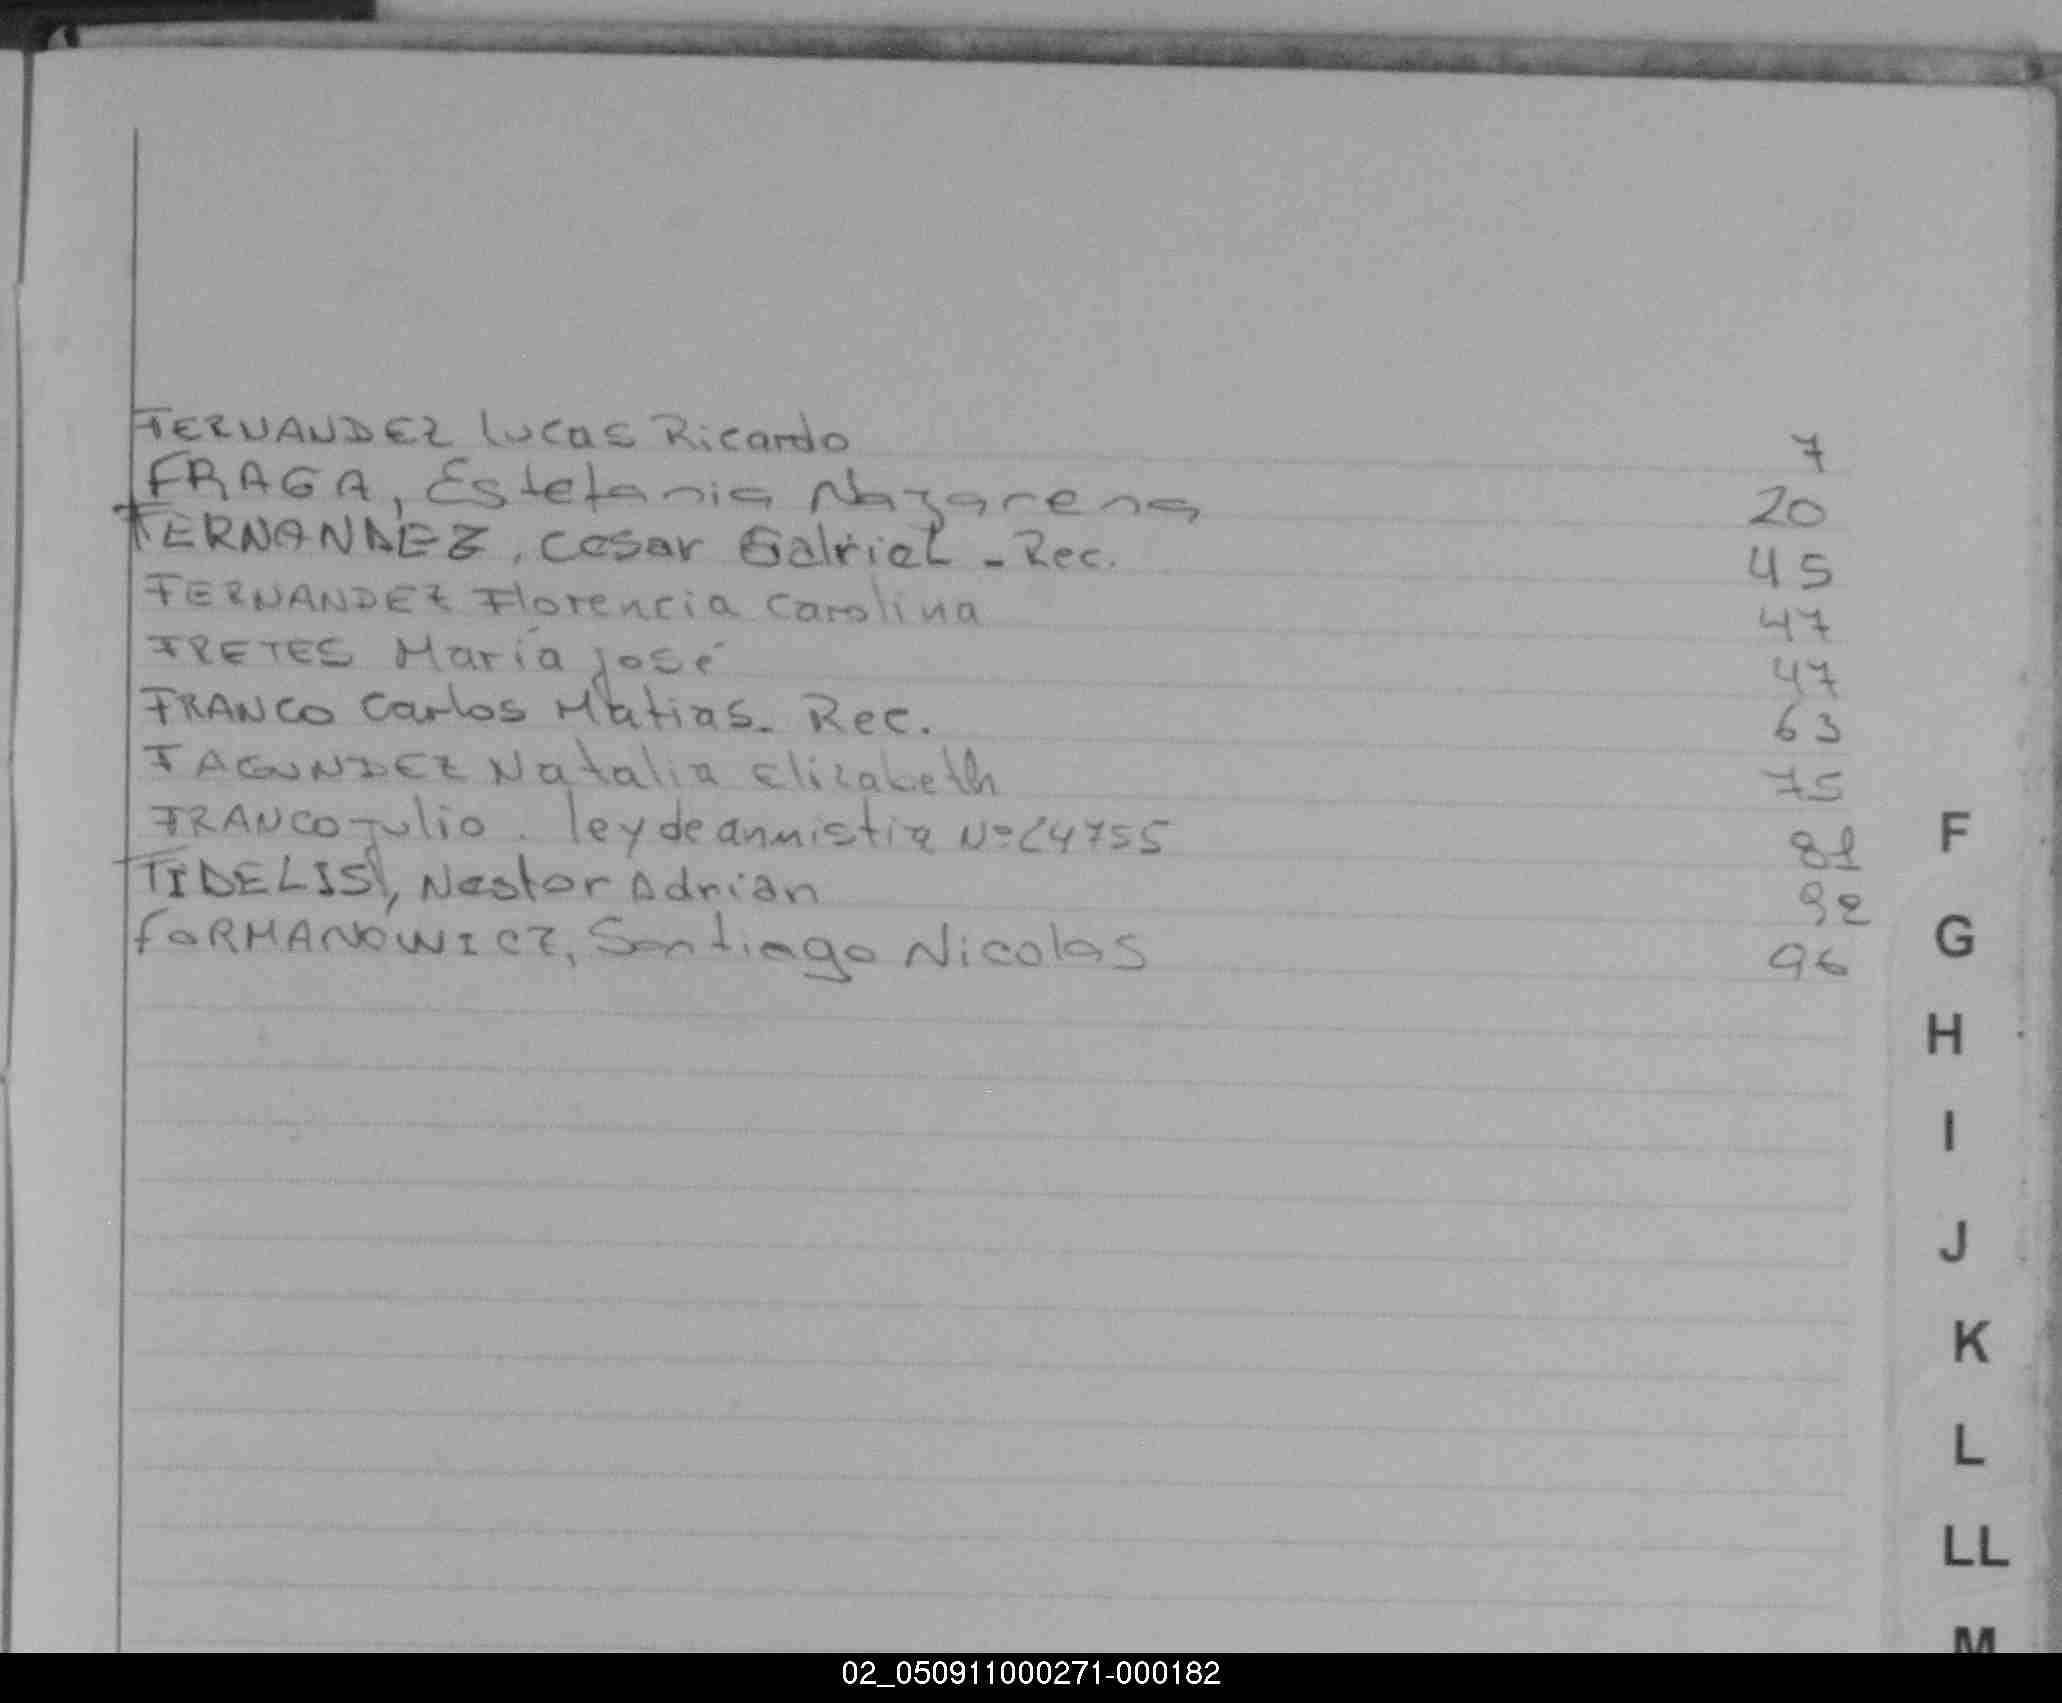 FERNANDEZ Lucas Ricardo 7
FRAGA, Estefania Nazarena 20
FERNANDEZ, Cesar Gabriel - Rec. 45
FERNANDEZ Florencia Carolina 47
FRETES María José 47
FRANCO Carlos Matias. Rec. 63
FAGUNDEZ Natalia Elizabeth 75
FRANCO Julio. ley de anmistia Nº 24755 81
FIDELIS, Nestor Adrian 92
FORMANOWICZ, Santiago Nicolas 96
F
G
H
I
J
K
L
LL
M
02_050911000271-000182